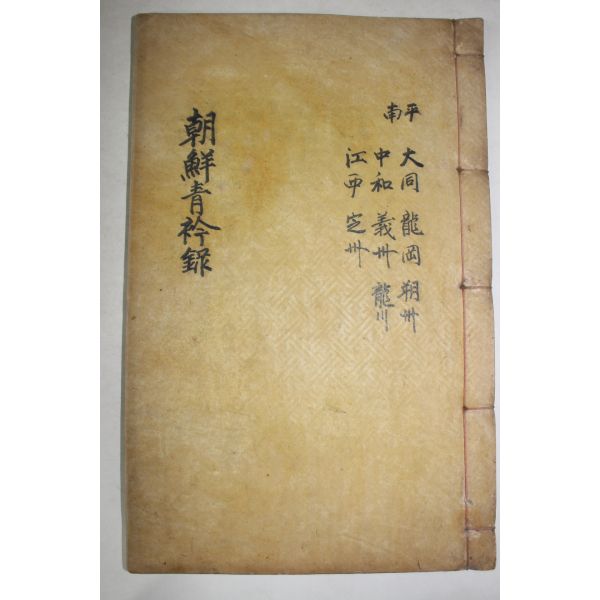 平南
大同 龍岡 朔州
中和 義州 龍川
江西 定州
朝鮮青衿錄